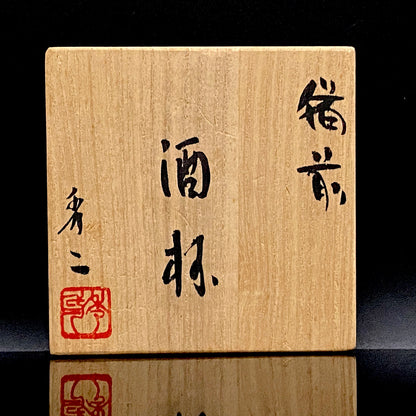 備前
酒杯
秀二